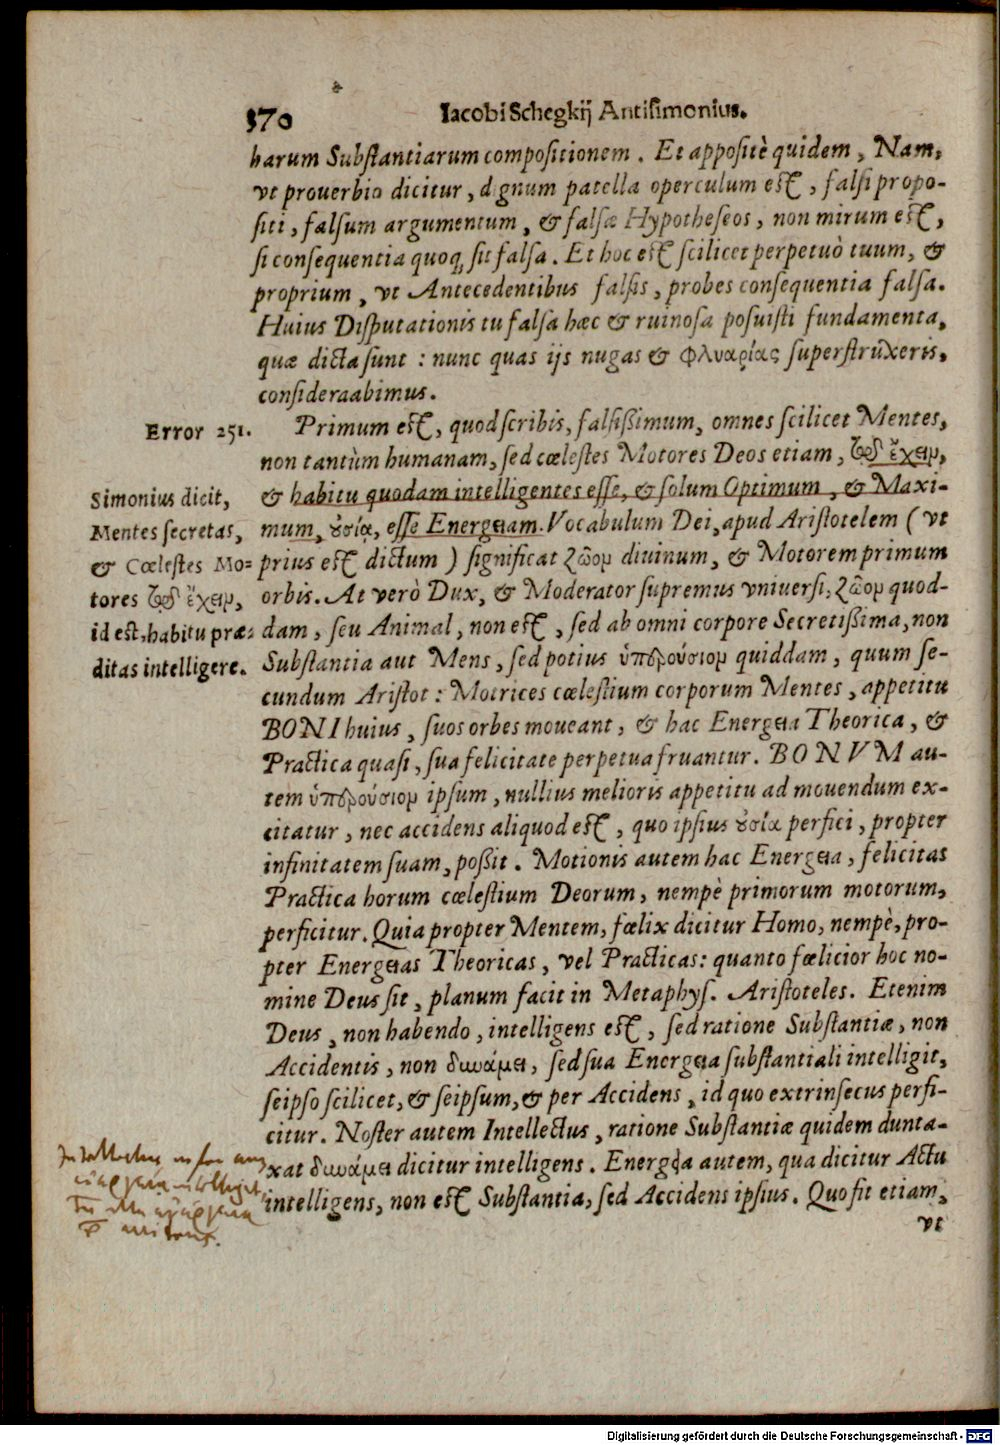 370 Iacobi Schegkij Antisimonius.
harum Substantiarum compositionem. Et appositè quidem, Nam,
vt prouerbio dicitur, dignum patella operculum est, falsi propo-
siti, falsum argumentum, & falsæ Hypotheseos, non mirum est,
si consequentia quoq; sit falsa. Et hoc est scilicet perpetuò tuum, &
proprium, vt Antecedentibus falsis, probes consequentia falsa.
Huius Disputationis tu falsa hæc & ruinosa posuisti fundamenta,
quæ dicta sunt: nunc quas ijs nugas & φλυαρίας superstrûxeris,
consideraabimus.
Error 251.
Primum est, quod scribis, falsissimum, omnes scilicet Mentes,
non tantùm humanam, sed cœlestes Motores Deos etiam, τῷ ἔχειν,
& habitu quodam intelligentes esse, & solum Optimum, & Maxi-
mum, ουσίᾳ, esse Energeiam. Vocabulum Dei, apud Aristotelem (vt
prius est dictum) significat ζῶον diuinum, & Motorem primum
orbis. At verò Dux, & Moderator supremus vniuersi, ζῶον quod-
dam, seu Animal, non est, sed ab omni corpore Secretissima, non
Substantia aut Mens, sed potius ὑπερούσιον quiddam, quum se-
cundum Aristot: Motrices cœlestium corporum Mentes, appetitu
BONI huius, suos orbes moueant, & hac Energeia Theorica, &
Practica quasi, sua felicitate perpetua fruantur. BONVM au-
tem ὑπερούσιον ipsum, nullius melioris appetitu ad mouendum ex-
citatur, nec accidens aliquod est, quo ipsius ουσία perfici, propter
infinitatem suam, possit. Motionis autem hac Energeia, felicitas
Practica horum cœlestium Deorum, nempè primorum motorum,
perficitur. Quia propter Mentem, fœlix dicitur Homo, nempè, pro-
pter Energeias Theoricas, vel Practicas: quanto fœlicior hoc no-
mine Deus sit, planum facit in Metaphys. Aristoteles. Etenim
Deus, non habendo, intelligens est, sed ratione Substantiæ, non
Accidentis, non δυνάμει, sed sua Energeia substantiali intelligit,
seipso scilicet, & seipsum, & per Accidens, id quo extrinsecus perfi-
citur. Noster autem Intellectus, ratione Substantiæ quidem dunta-
xat δυνάμει dicitur intelligens. Energeia autem, qua dicitur Actu
intelligens, non est Substantia, sed Accidens ipsius. Quo fit etiam,
vt
Simonius dicit,
Mentes secretas,
& Cœlestes Mo-
tores τῷ ἔχειν,
id est, habitu præ-
ditas intelligere.
Intellectus
Digitalisierung gefördert durch die Deutsche Forschungsgemeinschaft - DFG